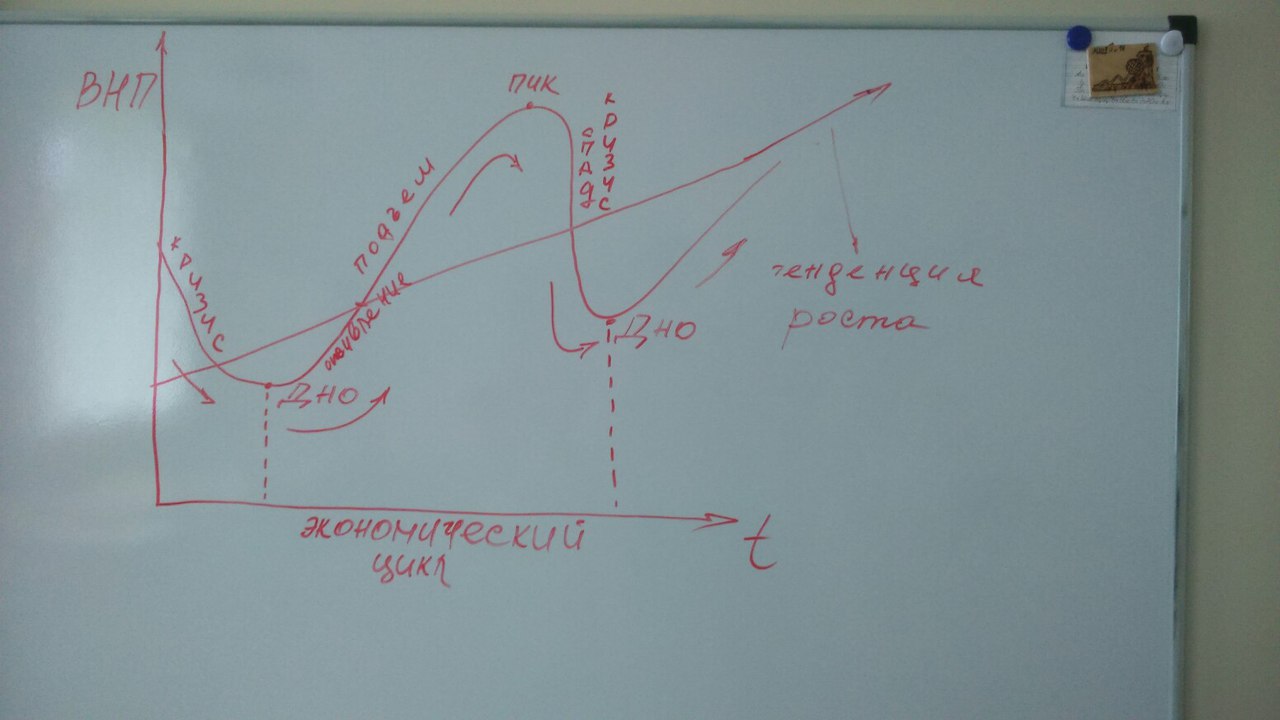 ВНП
пик
кризис
спад
подъем
кризис
оживление
тенденция
роста
Дно
Дно
экономический
цикл
t